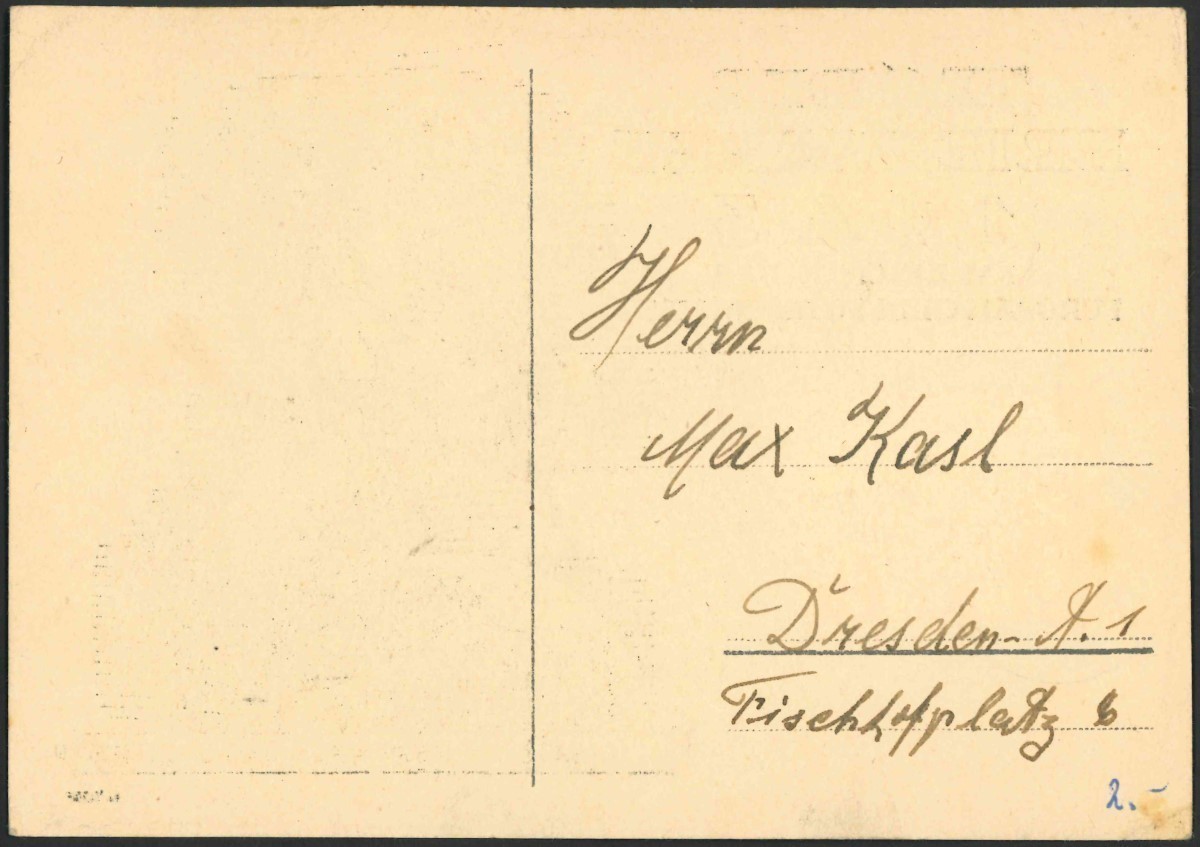 Herrn
Max Kasl
Dresden-A. 1
Fischhofplatz 6
2.-